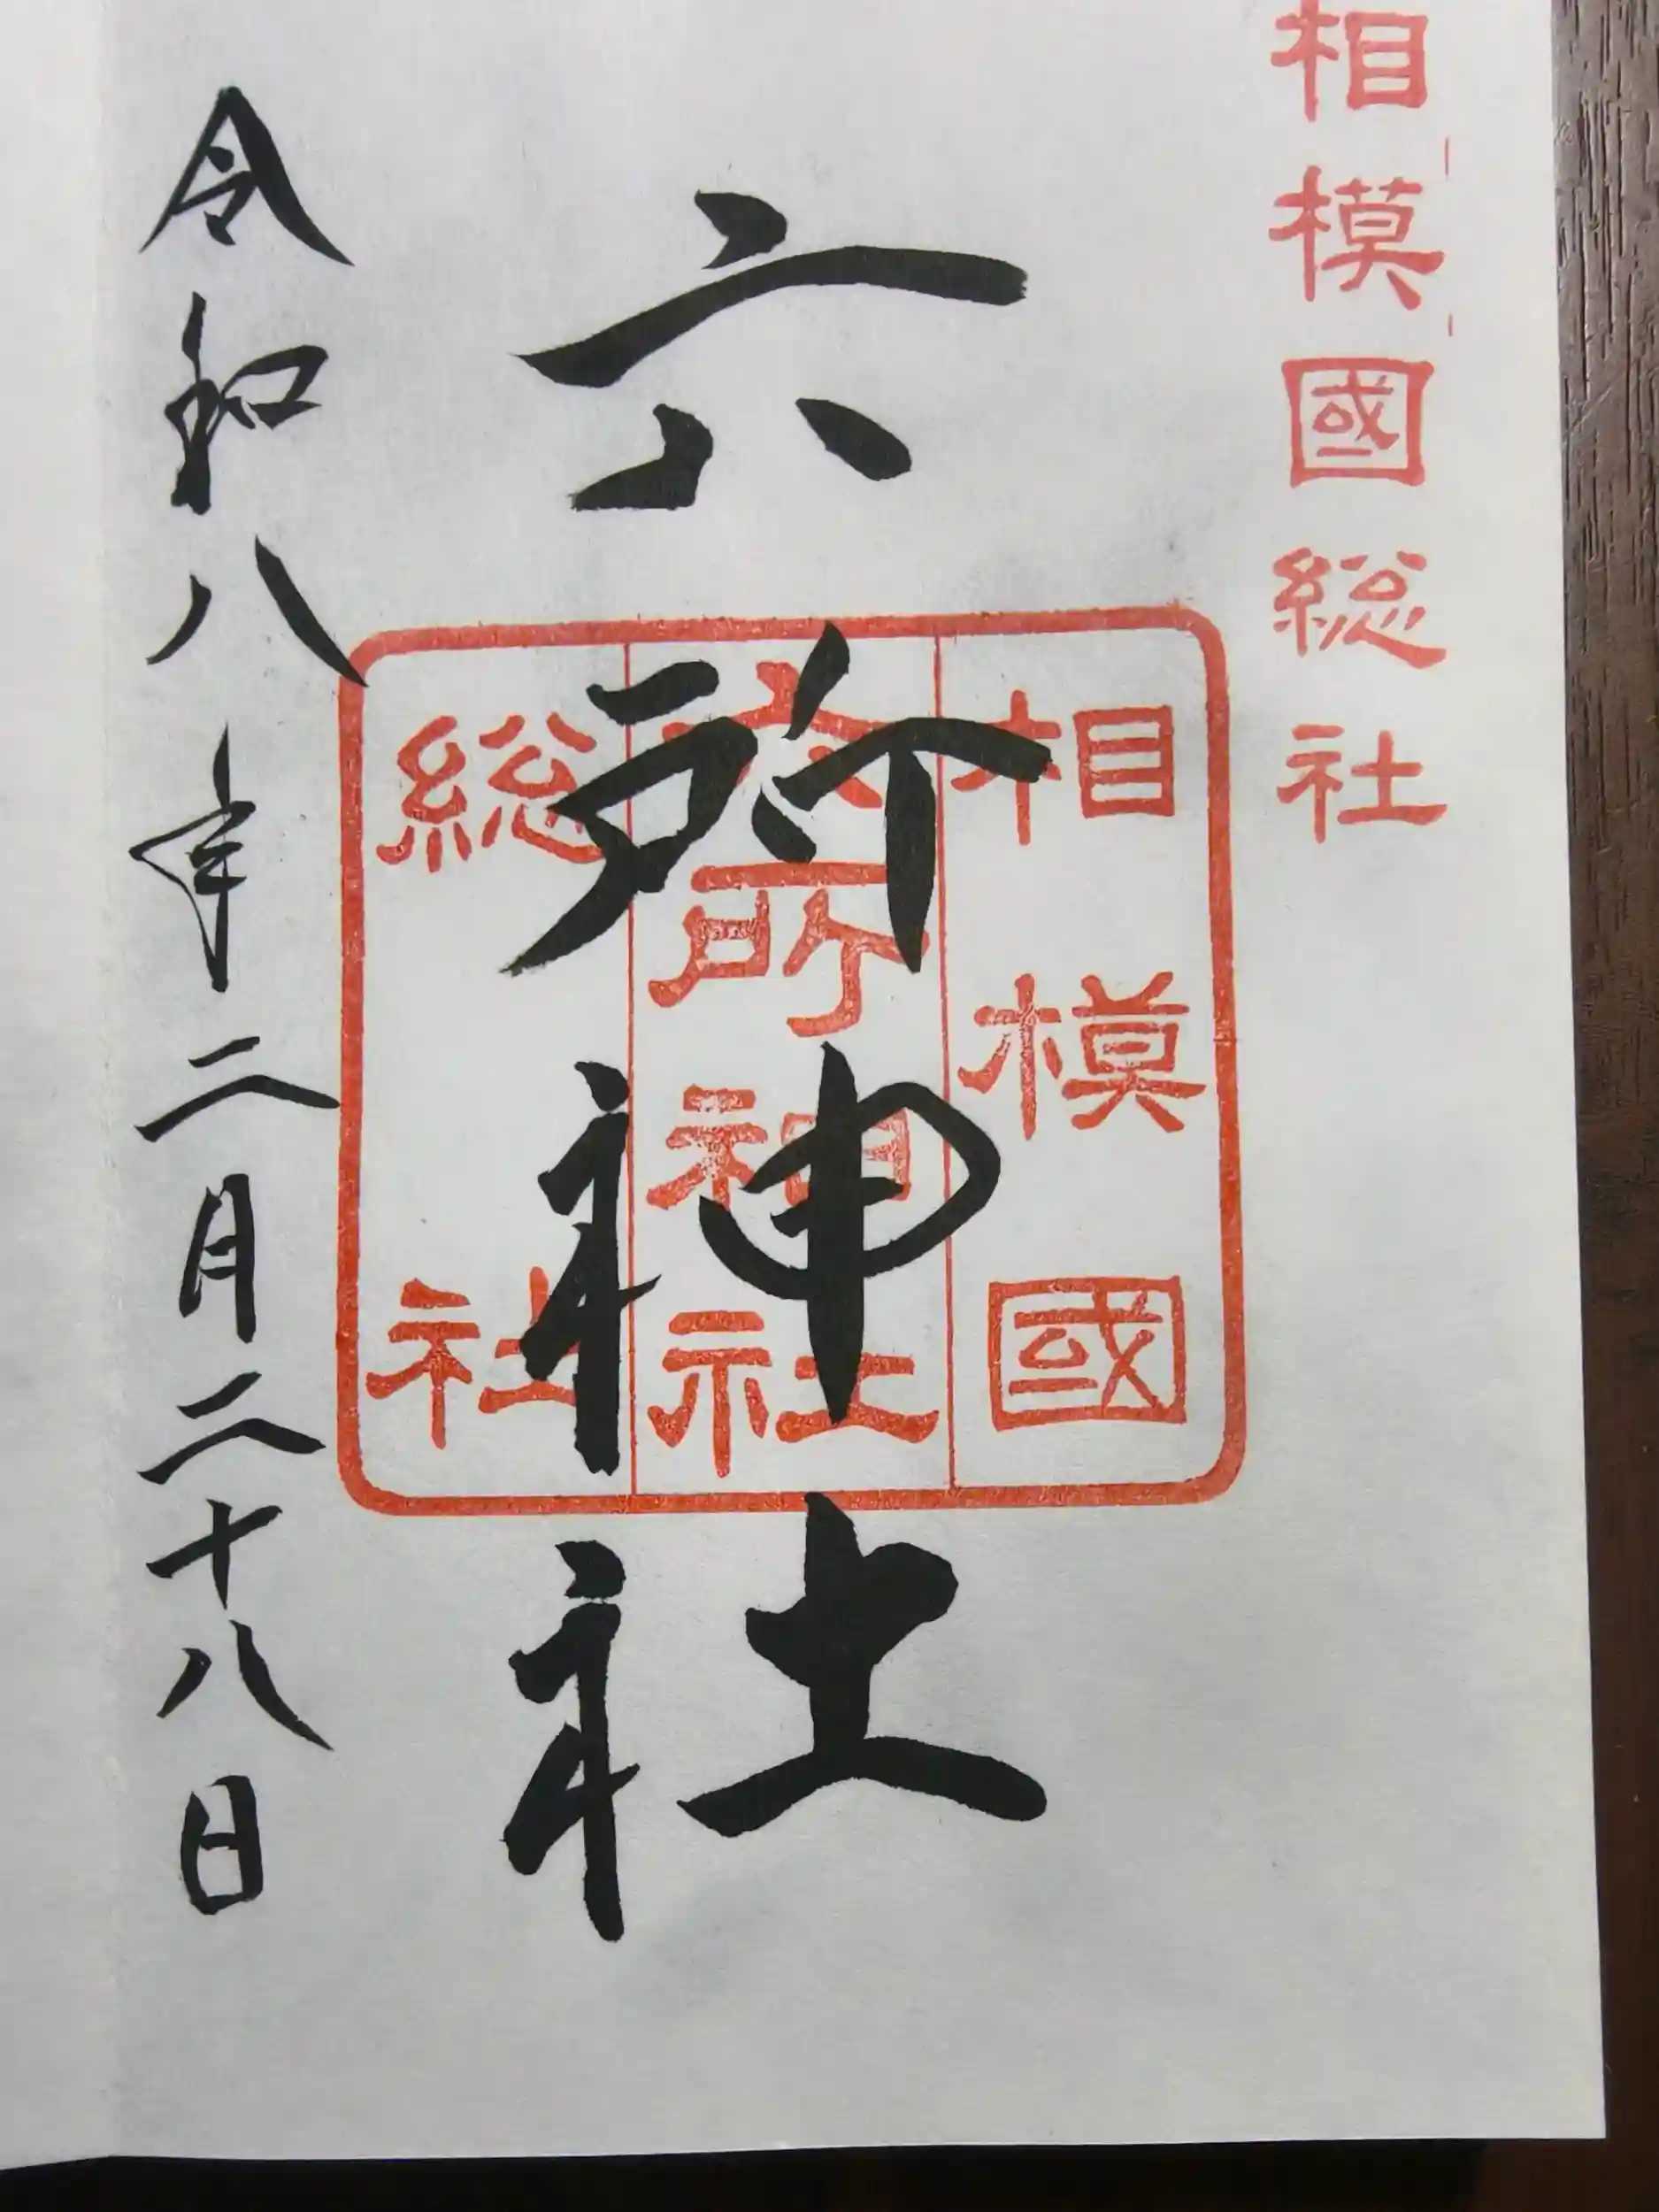 相模國総社
六所神社
相模國
六所神社
総社
令和八年二月二十八日